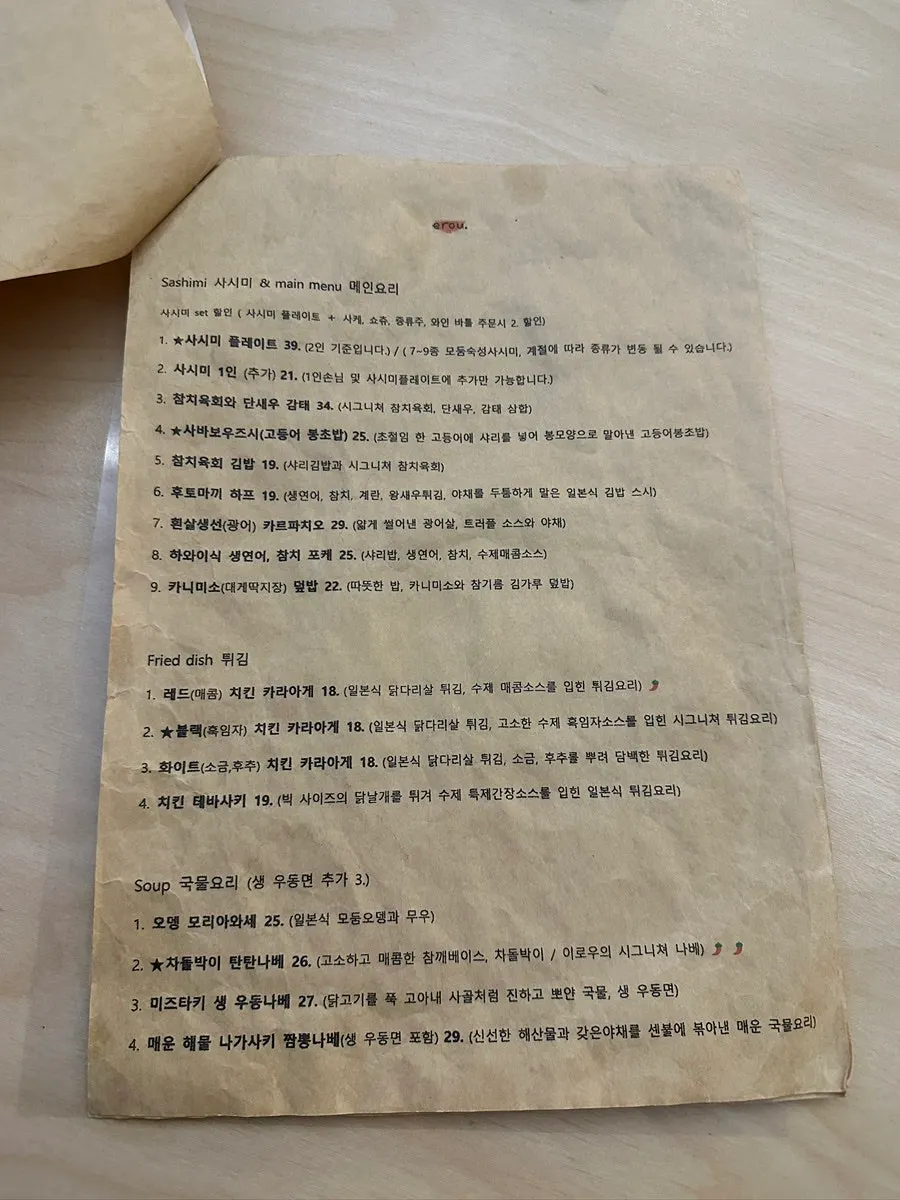 erou.
Sashimi 사시미 & main menu 메인요리
사시미 set 할인 ( 사시미 플레이트 + 사케, 쇼츄, 증류주, 와인 바틀 주문시 2. 할인)
1. ★사시미 플레이트 39. (2인 기준입니다.) / ( 7~9종 모둠숙성사시미, 계절에 따라 종류가 변동 될 수 있습니다.)
2. 사시미 1인 (추가) 21. (1인손님 및 사시미플레이트에 추가만 가능합니다.)
3. 참치육회와 단새우 감태 34. (시그니쳐 참치육회, 단새우, 감태 삼합)
4. ★사바보우즈시(고등어 봉초밥) 25. (초절임 한 고등어에 샤리를 넣어 봉모양으로 말아낸 고등어봉초밥)
5. 참치육회 김밥 19. (샤리김밥과 시그니쳐 참치육회)
6. 후토마끼 하프 19. (생연어, 참치, 계란, 왕새우튀김, 야채를 두툼하게 말은 일본식 김밥 스시)
7. 흰살생선(광어) 카르파치오 29. (얇게 썰어낸 광어살, 트러플 소스와 야채)
8. 하와이식 생연어, 참치 포케 25. (샤리밥, 생연어, 참치, 수제매콤소스)
9. 카니미소(대게딱지장) 덮밥 22. (따뜻한 밥, 카니미소와 참기름 김가루 덮밥)
Fried dish 튀김
1. 레드(매콤) 치킨 카라아게 18. (일본식 닭다리살 튀김, 수제 매콤소스를 입힌 튀김요리) 🌶
2. ★블랙(흑임자) 치킨 카라아게 18. (일본식 닭다리살 튀김, 고소한 수제 흑임자소스를 입힌 시그니쳐 튀김요리)
3. 화이트(소금,후추) 치킨 카라아게 18. (일본식 닭다리살 튀김, 소금, 후추를 뿌려 담백한 튀김요리)
4. 치킨 테바사키 19. (빅 사이즈의 닭날개를 튀겨 수제 특제간장소스를 입힌 일본식 튀김요리)
Soup 국물요리 (생 우동면 추가 3.)
1. 오뎅 모리아와세 25. (일본식 모둠오뎅과 무우)
2. ★차돌박이 탄탄나베 26. (고소하고 매콤한 참깨베이스, 차돌박이 / 이로우의 시그니쳐 나베) 🌶 🌶
3. 미즈타키 생 우동나베 27. (닭고기를 푹 고아내 사골처럼 진하고 뽀얀 국물, 생 우동면)
4. 매운 해물 나가사키 짬뽕나베(생 우동면 포함) 29. (신선한 해산물과 갖은야채를 센불에 볶아낸 매운 국물요리)